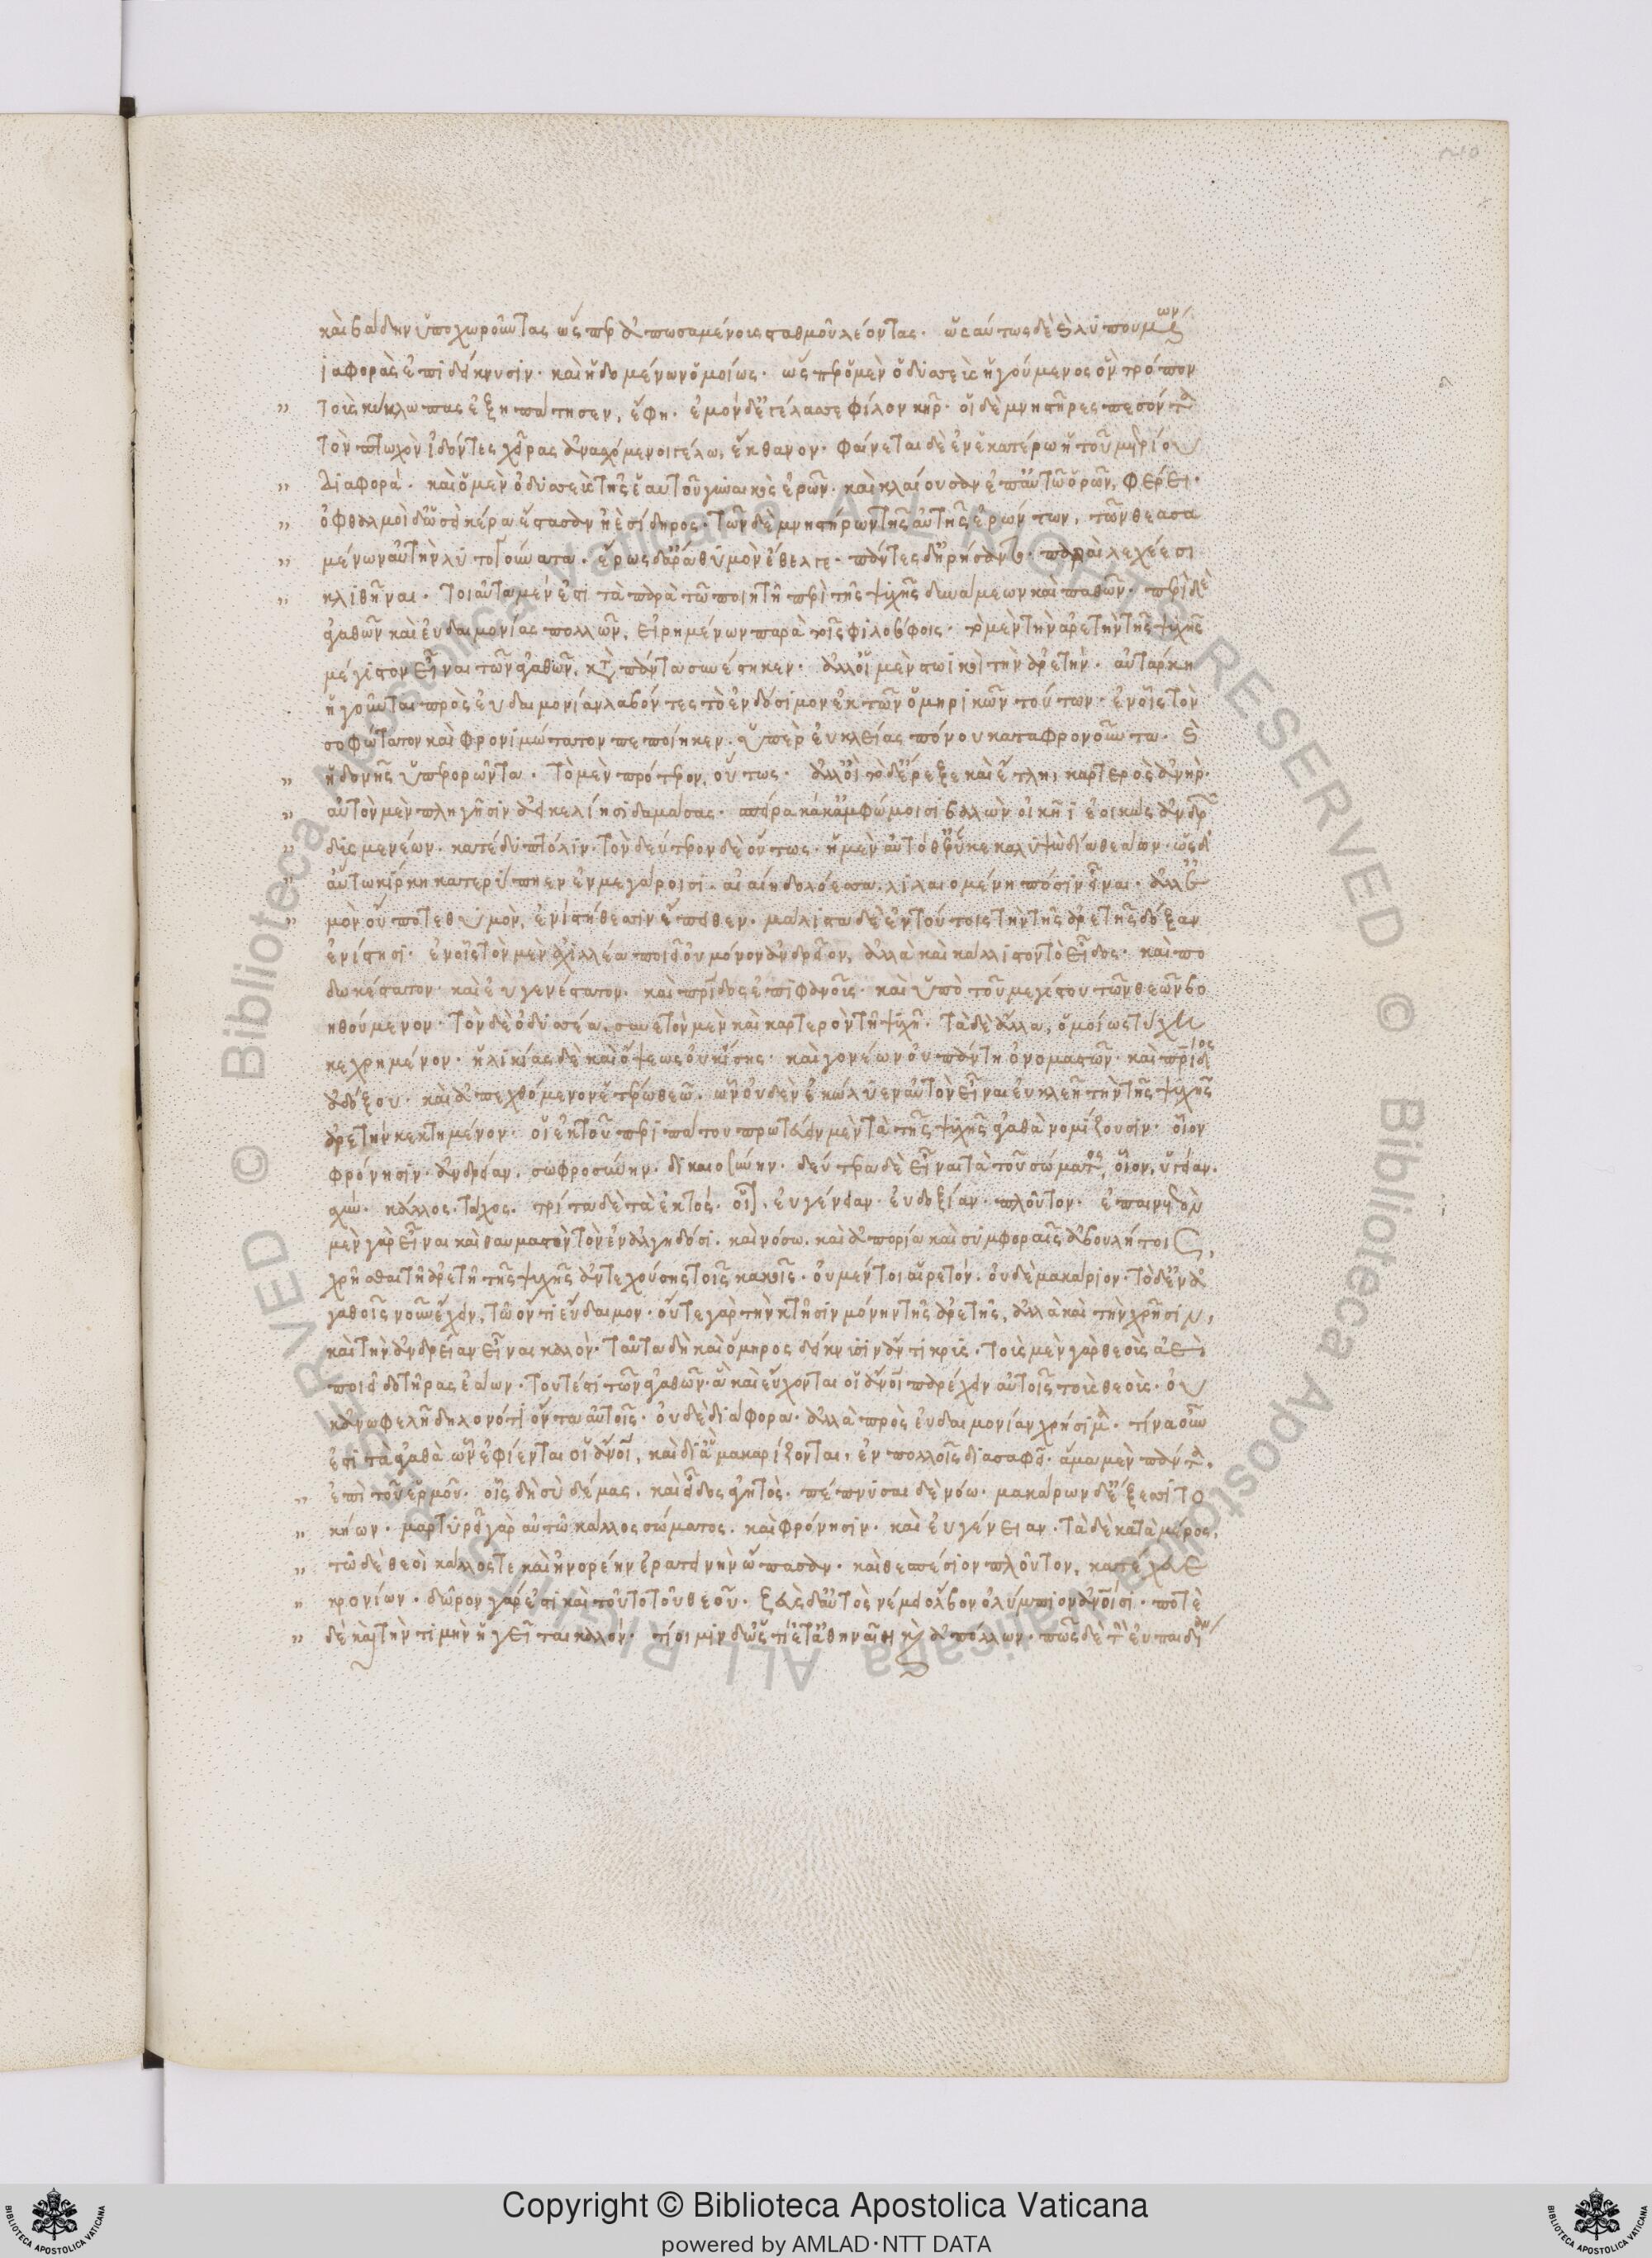 καὶ βάδην ὑποχωροῦντας ὥσπερ ἀπωσαμένοις σταθμοῦ λέοντας. ὡσαύτως δὲ καὶ λυπουμένων
διαφορὰς ἐπιδείκνυσιν. καὶ ἡδομένων ὁμοίως. ὥσπερ ὁ μὲν ὀδυσσεὺς ἡγούμενος ὃν τρόπον
τοὺς κύκλωπας ἐξηπάτησεν, ἔφη. ἐμὸν δ' ἐγέλασσε φίλον κῆρ. οἱ δὲ μνηστῆρες πεσόντα
τὸν πτωχὸν ἰδόντες χεῖρας ἀνασχόμενοι γέλω, ἔκθανον. φαίνεται δὲ ἐν ἑκατέρω ἡ τοῦ μετρίου
διαφορά. καὶ ὁ μὲν ὀδυσσεὺς τῆς ἑαυτοῦ γυναικὸς ἐρῶν. καὶ κλαίουσαν ἐπ' αὐτῶ ὁρῶν, φέρει.
ὀφθαλμοὶ δ' ὡσεὶ κέρα ἕστασαν ἠὲ σίδηρος. τῶν δὲ μνηστήρων τῆς αὐτῆς ἐρώντων, τῶν θεασα
μένων αὐτὴν λύτο γούνατα. ἔρως δ' ἄρα θυμὸν ἔθελγε. πάντες δ' ἠρήσαντο παραὶ λεχέεσσι
κλιθῆναι. τοιαῦτα μέν ἐστι τὰ παρὰ τῶ ποιητῆ περὶ τῆς ψυχῆς δυνάμεων καὶ παθῶν. περὶ δὲ
ἀγαθῶν καὶ εὐδαιμονίας πολλῶν, εἰρημένων παρὰ τοῖς φιλοσόφοις. τὸ μὲν τὴν ἀρετὴν τῆς ψυχῆς
μέγιστον εἶναι τῶν ἀγαθῶν, κατὰ πάντα συνέστηκεν. ἀλλ' οἱ μὲν στωικοὶ τὴν ἀρετὴν. αὐτάρκη
ἡγοῦνται πρὸς εὐδαιμονίαν λαβόντες τὸ ἐνδόσιμον ἐκ τῶν ὁμηρικῶν τούτων. ἐν οἷς τὸν
σοφώτατον καὶ φρονιμώτατον πεποίηκεν. ὑπὲρ εὐκλείας πόνου καταφρονοῦντα. καὶ
ἡδονῆς ὑπερορῶντα. τὸ μὲν πρότερον, οὕτως. ἀλλ' οἷον τόδ' ἔρεξε καὶ ἔτλη, καρτερὸς ἀνὴρ.
αὐτὸν μὲν πληγῆσιν ἀεικελίησι δαμάσσας. σπεῖρα κάκ' ἀμφ' ὤμοισι βαλὼν οἰκῆι ἐοικὼς ἀνδρῶν
δυσμενέων. κατέδυ πτόλιν. τὸν δεύτερον δὲ οὕτως. ἦ μὲν αὐτόθ' ἔρυκε καλυψὼ δῖα θεάων. ὡς δ'
αὔτω κίρκη κατερήτυεν ἐν μεγάροισι. αἰαίη δολόεσσα, λιλαιομένη πόσιν εἶναι. ἀλλ' ἐ
μὸν οὔποτε θυμὸν, ἐνὶ στήθεσσιν ἔπειθεν. μάλιστα δὲ ἐν τούτοις τὴν τῆς ἀρετῆς δόξαν
ἐνίστησι. ἐν οἷς τὸν μὲν ἀχιλλέα ποιεῖ οὐ μόνον ἀνδρεῖον, ἀλλὰ καὶ κάλλιστον τὸ εἶδος. καὶ πο
δωκέστατον. καὶ εὐγενέστατον. καὶ πατρίδος ἐπιφανοῦς. καὶ ὑπὸ τοῦ μεγίστου τῶν θεῶν βο
ηθούμενον. τὸν δὲ ὀδυσσέα, συνετὸν μὲν καὶ καρτερὸν τῆ ψυχῆ. τὰ δὲ ἄλλα, ὁμοίως τύχη
κεχρημένον. ἡλικίας δὲ καὶ ὄψεως οὐκ ἴσης. καὶ γονέων οὐ πάντη ὀνομαστῶν. καὶ πατρίδος
ἀδόξου. καὶ ἀπεχθόμενον ἑτέρω θεῶ. ὧν οὐδὲν ἐκώλυεν αὐτὸν εἶναι εὐκλεῆ τὴν τῆς ψυχῆς
ἀρετὴν κεκτημένον. οἱ ἐκ τοῦ περιπάτου πρωτεύειν μὲν τὰ τῆς ψυχῆς ἀγαθὰ νομίζουσιν. οἷον
φρόνησιν. ἀνδρείαν. σωφροσύνην. δικαιοσύνην. δεύτερα δὲ εἶναι τὰ τοῦ σώματος, οἷον, ὑγείαν.
ἰσχύν. κάλλος. τάχος. τρίτα δὲ τὰ ἐκτός. οἷον, εὐγένειαν. εὐδοξίαν. πλοῦτον. ἐπαινετὸν
μὲν γὰρ εἶναι καὶ θαυμαστὸν τὸν ἐν ἀλγηδόσι. καὶ νόσω. καὶ ἀπορία καὶ συμφοραῖς ἀβουλήτοις,
χρῆσθαι τῆ ἀρετῆ τῆς ψυχῆς ἀντεχούσης τοῖς κακοῖς. οὐ μέντοι αἱρετόν. οὐδὲ μακάριον. τὸ δ' ἐν ἀ
γαθοῖς νοῦν ἔχειν, τῶ ὄντι εὔδαιμον. οὔτε γὰρ τὴν κτῆσιν μόνην τῆς ἀρετῆς, ἀλλὰ καὶ τὴν χρῆσιν,
καὶ τὴν ἀνδρείαν εἶναι καλόν. ταῦτα δὴ καὶ ὅμηρος δείκνυσιν ἄντικρυς. τοὺς μὲν γὰρ θεοὺς ἀεὶ
ποιεῖ δοτῆρας ἐάων. τουτέστι τῶν ἀγαθῶν. ἃ καὶ εὔχονται οἱ ἄνθρωποι παρέχειν αὐτοῖς τοὺς θεοὺς. οὐ
κ ἀνωφελῆ δηλονότι ὄντα αὐτοῖς. οὐδὲ διάφορα. ἀλλὰ πρὸς εὐδαιμονίαν χρήσιμα. τίνα οὖν
ἐστὶ τὰ ἀγαθὰ ὧν ἐφίενται οἱ ἄνθρωποι, καὶ δι' ἃ μακαρίζονται, ἐν πολλοῖς διασαφεῖ. ἅμα μὲν πάντα,
ἐπὶ τοῦ ἑρμοῦ. οἷος δὴ σὺ δέμας. καὶ εἶδος ἀγητὸς. πέπνυσαι δὲ νόω. μακάρων δ' ἔξεσσι το
κήων. μαρτυρεῖ γὰρ αὐτῶ κάλλος σώματος. καὶ φρόνησιν. καὶ εὐγένειαν. τὰ δὲ κατὰ μέρος,
τῶ δὲ θεοὶ κάλλος τε καὶ ἠνορέην ἐρατεινὴν ὤπασαν. καὶ θεσπέσιον πλοῦτον, κατέχευε
κρονίων. δῶρον γάρ ἐστι καὶ τοῦτο τοῦ θεοῦ. ζεὺς δ' αὐτὸς νέμει ὄλβον ὀλύμπιος ἀνθρώποισι. ποτὲ
δὲ καὶ τὴν τιμὴν ἡγεῖται καλόν. τίοιμην δ' ὡς τίετ' ἀθηναίη καὶ ἀπόλλων. ποτὲ δὲ τὴν εὐπαιδίαν